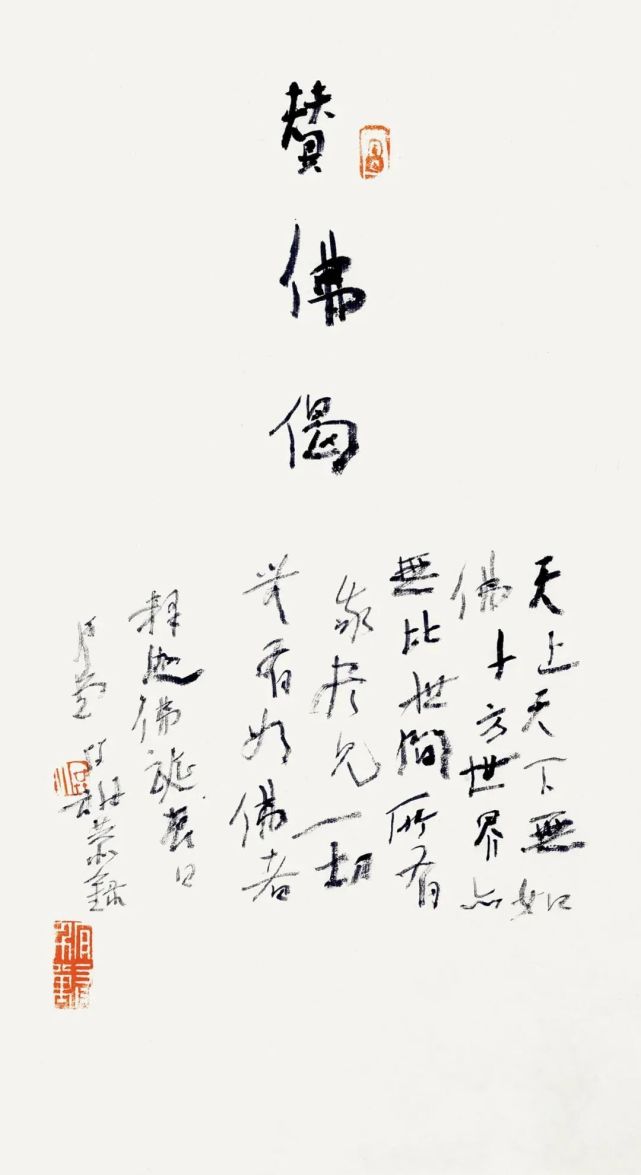 贊佛偈
天上天下無如
佛十方世界亦
無比世間所有
我盡見一切
無有如佛者
釋迦佛誕辰日